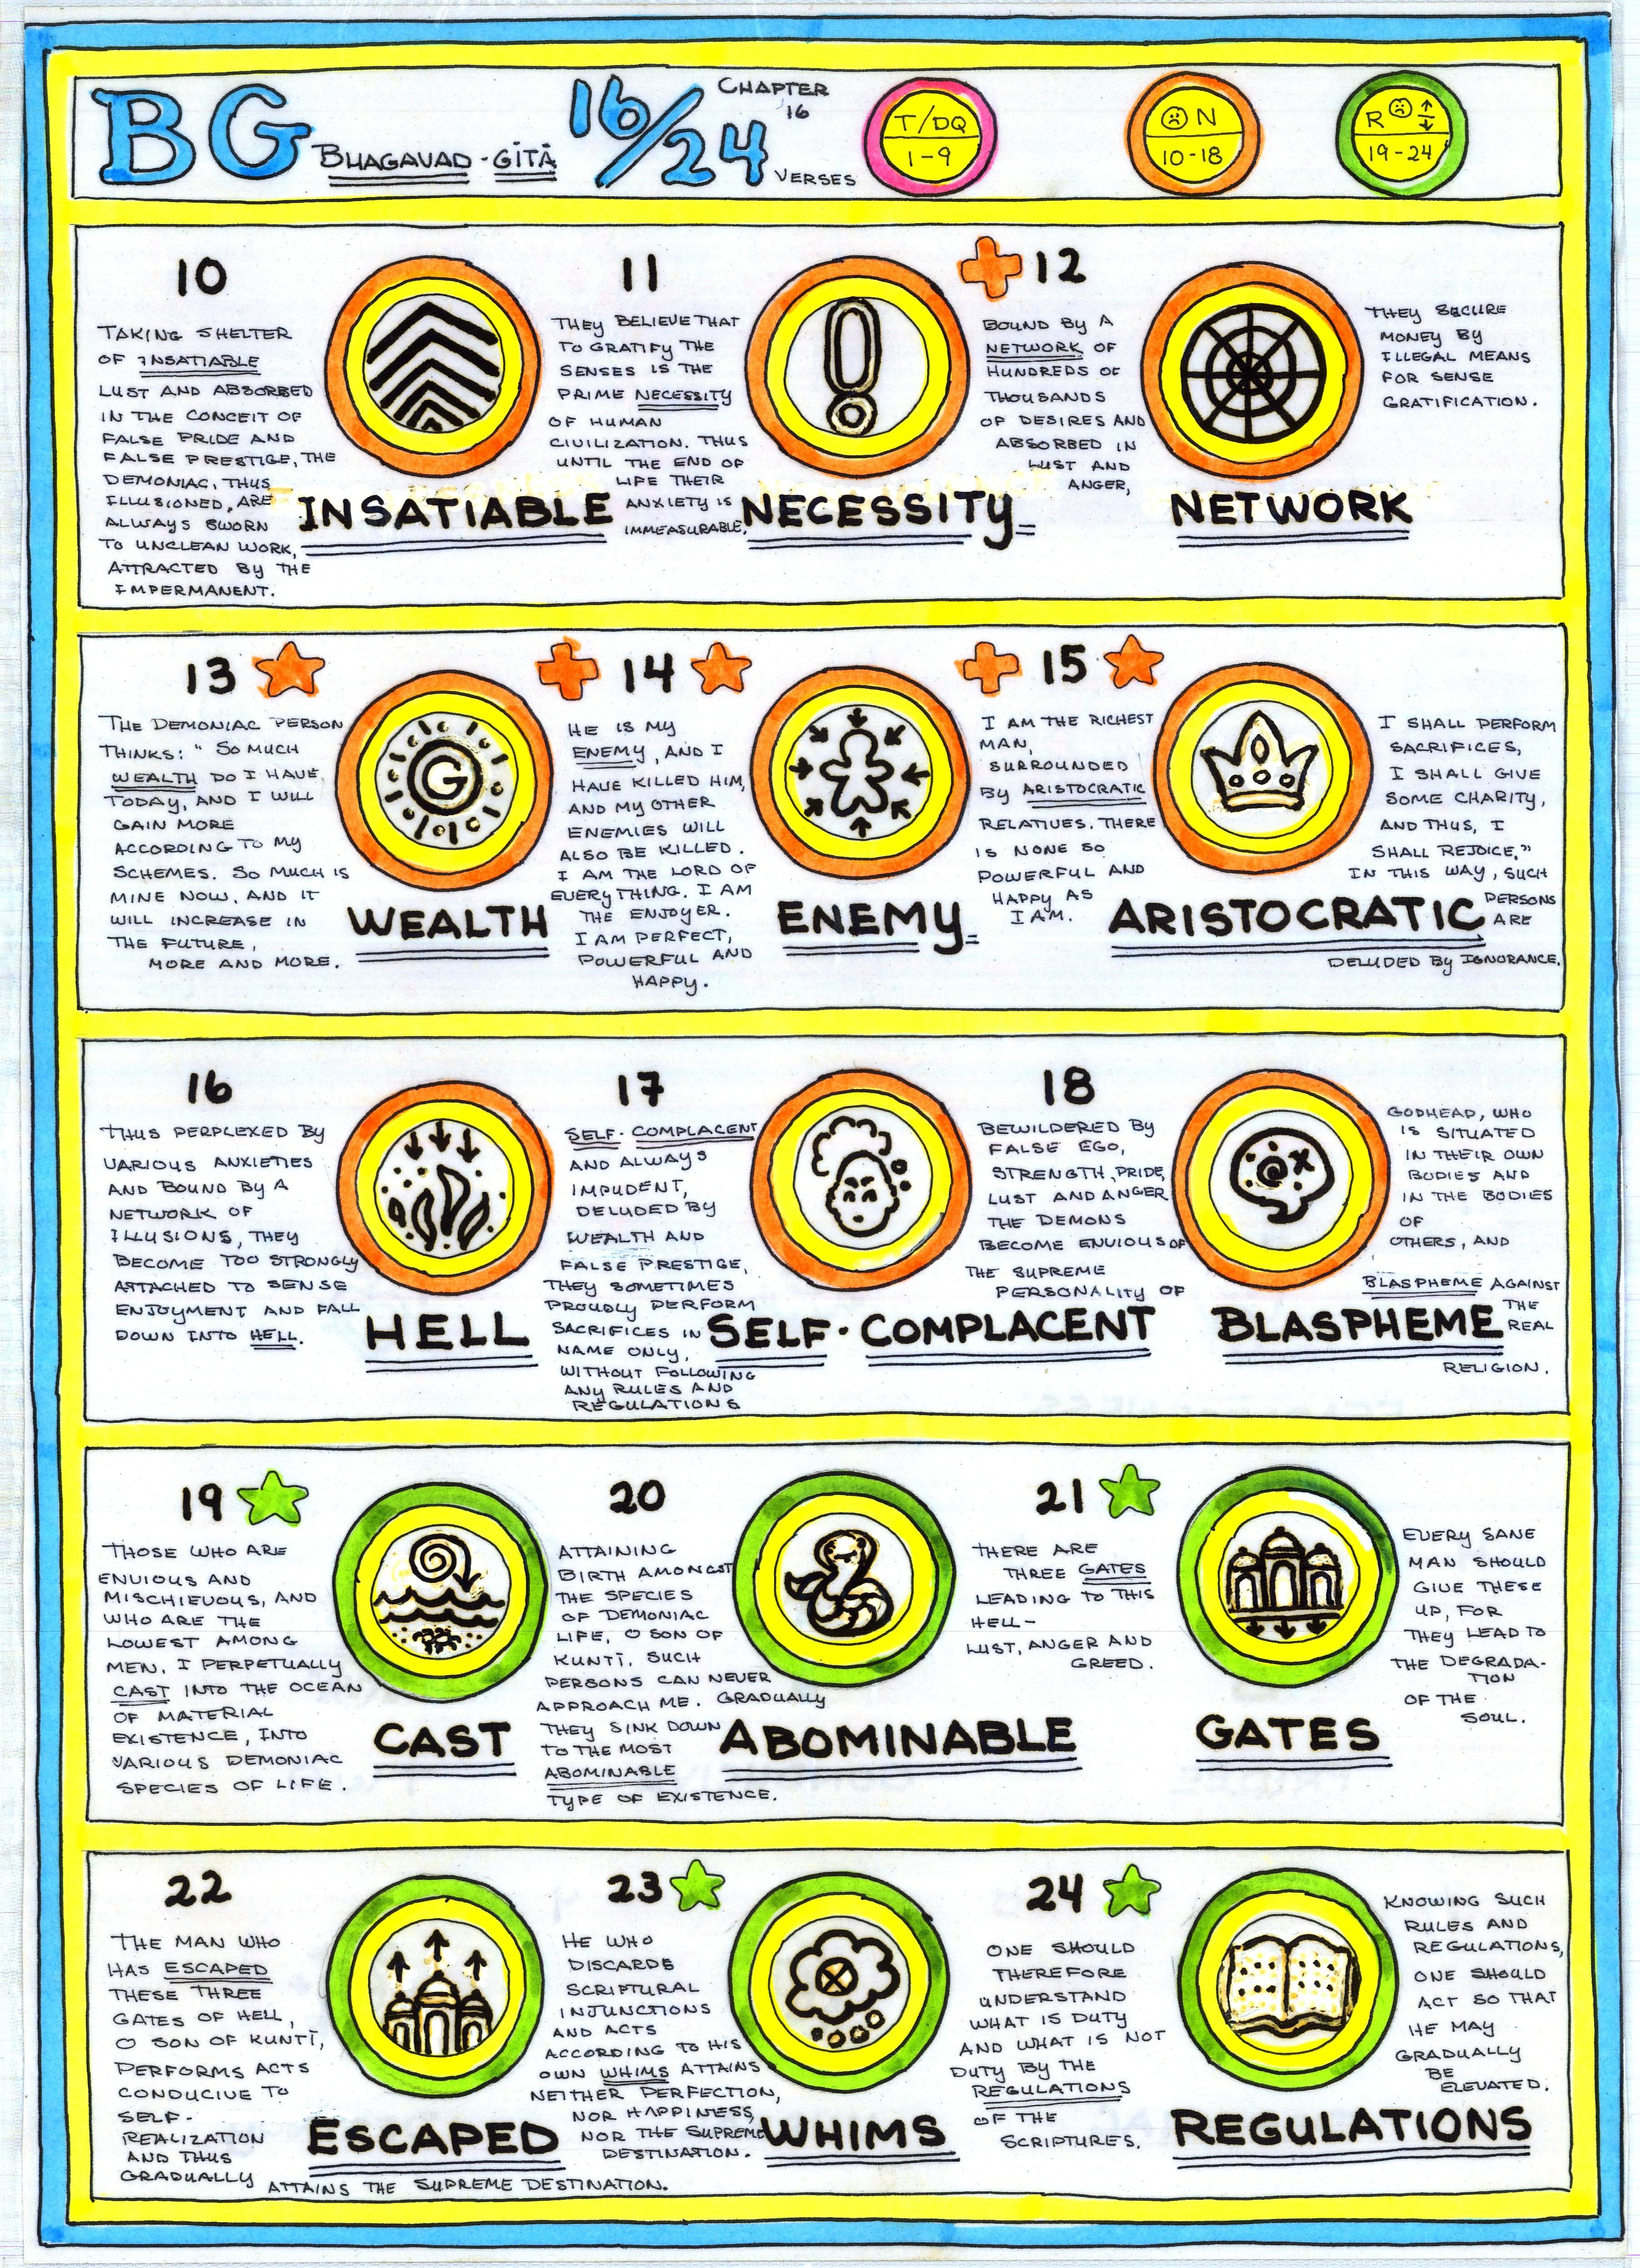 BG BHAGAVAD-GĪTĀ 16/24 CHAPTER 16 VERSES
T/DQ
1-9
N
10-18
R
19-24
10
TAKING SHELTER
OF INSATIABLE
LUST AND ABSORBED
IN THE CONCEIT OF
FALSE PRIDE AND
FALSE PRESTIGE, THE
DEMONIAC, THUS
ILLUSIONED, ARE
ALWAYS SWORN
TO UNCLEAN WORK,
ATTRACTED BY THE
IMPERMANENT.
INSATIABLE
11
THEY BELIEVE THAT
TO GRATIFY THE
SENSES IS THE
PRIME NECESSITY
OF HUMAN
CIVILIZATION. THUS
UNTIL THE END OF
LIFE THEIR
ANXIETY IS
IMMEASURABLE.
NECESSITY
12
BOUND BY A
NETWORK OF
HUNDREDS OF
THOUSANDS
OF DESIRES AND
ABSORBED IN
LUST AND
ANGER,
THEY SECURE
MONEY BY
ILLEGAL MEANS
FOR SENSE
GRATIFICATION.
NETWORK
13
THE DEMONIAC PERSON
THINKS: "SO MUCH
WEALTH DO I HAVE
TODAY, AND I WILL
GAIN MORE
ACCORDING TO MY
SCHEMES. SO MUCH IS
MINE NOW, AND IT
WILL INCREASE IN
THE FUTURE,
MORE AND MORE.
G
WEALTH
14
HE IS MY
ENEMY, AND I
HAVE KILLED HIM,
AND MY OTHER
ENEMIES WILL
ALSO BE KILLED.
I AM THE LORD OF
EVERYTHING. I AM
THE ENJOYER.
I AM PERFECT,
POWERFUL AND
HAPPY.
ENEMY
15
I AM THE RICHEST
MAN,
SURROUNDED
BY ARISTOCRATIC
RELATIVES. THERE
IS NONE SO
POWERFUL AND
HAPPY AS
I AM.
I SHALL PERFORM
SACRIFICES,
I SHALL GIVE
SOME CHARITY,
AND THUS, I
SHALL REJOICE."
IN THIS WAY, SUCH
PERSONS
ARE
DELUDED BY IGNORANCE.
ARISTOCRATIC
16
THUS PERPLEXED BY
VARIOUS ANXIETIES
AND BOUND BY A
NETWORK OF
ILLUSIONS, THEY
BECOME TOO STRONGLY
ATTACHED TO SENSE
ENJOYMENT AND FALL
DOWN INTO HELL.
HELL
17
SELF-COMPLACENT
AND ALWAYS
IMPUDENT,
DELUDED BY
WEALTH AND
FALSE PRESTIGE,
THEY SOMETIMES
PROUDLY PERFORM
SACRIFICES IN
NAME ONLY,
WITHOUT FOLLOWING
ANY RULES AND
REGULATIONS
SELF-COMPLACENT
18
BEWILDERED BY
FALSE EGO,
STRENGTH, PRIDE,
LUST AND ANGER
THE DEMONS
BECOME ENVIOUS OF
THE SUPREME
PERSONALITY OF
GODHEAD, WHO
IS SITUATED
IN THEIR OWN
BODIES AND
IN THE BODIES
OF
OTHERS, AND
BLASPHEME AGAINST
THE
REAL
RELIGION.
BLASPHEME
19
THOSE WHO ARE
ENVIOUS AND
MISCHIEVOUS, AND
WHO ARE THE
LOWEST AMONG
MEN, I PERPETUALLY
CAST INTO THE OCEAN
OF MATERIAL
EXISTENCE, INTO
VARIOUS DEMONIAC
SPECIES OF LIFE.
CAST
20
ATTAINING
BIRTH AMONGST
THE SPECIES
OF DEMONIAC
LIFE, O SON OF
KUNTĪ, SUCH
PERSONS CAN NEVER
APPROACH ME. GRADUALLY
THEY SINK DOWN
TO THE MOST
ABOMINABLE
TYPE OF EXISTENCE.
ABOMINABLE
21
THERE ARE
THREE GATES
LEADING TO THIS
HELL-
LUST, ANGER AND
GREED.
EVERY SANE
MAN SHOULD
GIVE THESE
UP, FOR
THEY LEAD TO
THE DEGRADA-
TION
OF THE
SOUL.
GATES
22
THE MAN WHO
HAS ESCAPED
THESE THREE
GATES OF HELL,
O SON OF KUNTĪ,
PERFORMS ACTS
CONDUCIVE TO
SELF-
REALIZATION
AND THUS
GRADUALLY ATTAINS THE SUPREME DESTINATION.
ESCAPED
23
HE WHO
DISCARDS
SCRIPTURAL
INJUNCTIONS
AND ACTS
ACCORDING TO HIS
OWN WHIMS ATTAINS
NEITHER PERFECTION,
NOR HAPPINESS,
NOR THE SUPREME
DESTINATION.
WHIMS
24
ONE SHOULD
THEREFORE
UNDERSTAND
WHAT IS DUTY
AND WHAT IS NOT
DUTY BY THE
REGULATIONS
OF THE
SCRIPTURES.
KNOWING SUCH
RULES AND
REGULATIONS,
ONE SHOULD
ACT SO THAT
HE MAY
GRADUALLY
BE
ELEVATED.
REGULATIONS